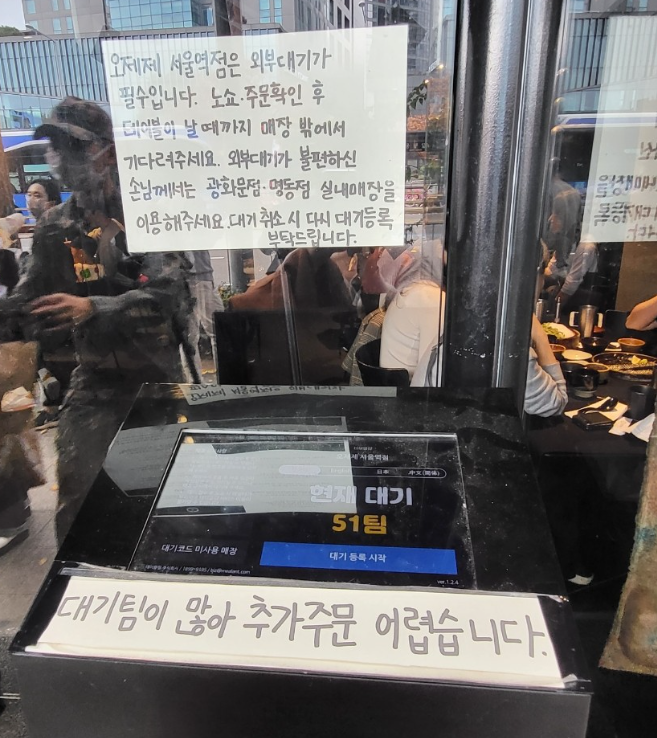 오제제 서울역점은 외부대기가
필수입니다. 노쇼·주문확인 후
테이블이 날 때까지 매장 밖에서
기다려주세요. 외부대기가 불편하신
손님께서는 광화문점·명동점 실내매장을
이용해주세요. 대기 취소시 다시 대기등록
부탁드립니다.
서울역점
日本
中文(简体)
현재 대기
51팀
대기코드 미사용 매장
대기 등록 시작
ver.1.2.4
대기팀이 많아 추가주문 어렵습니다.